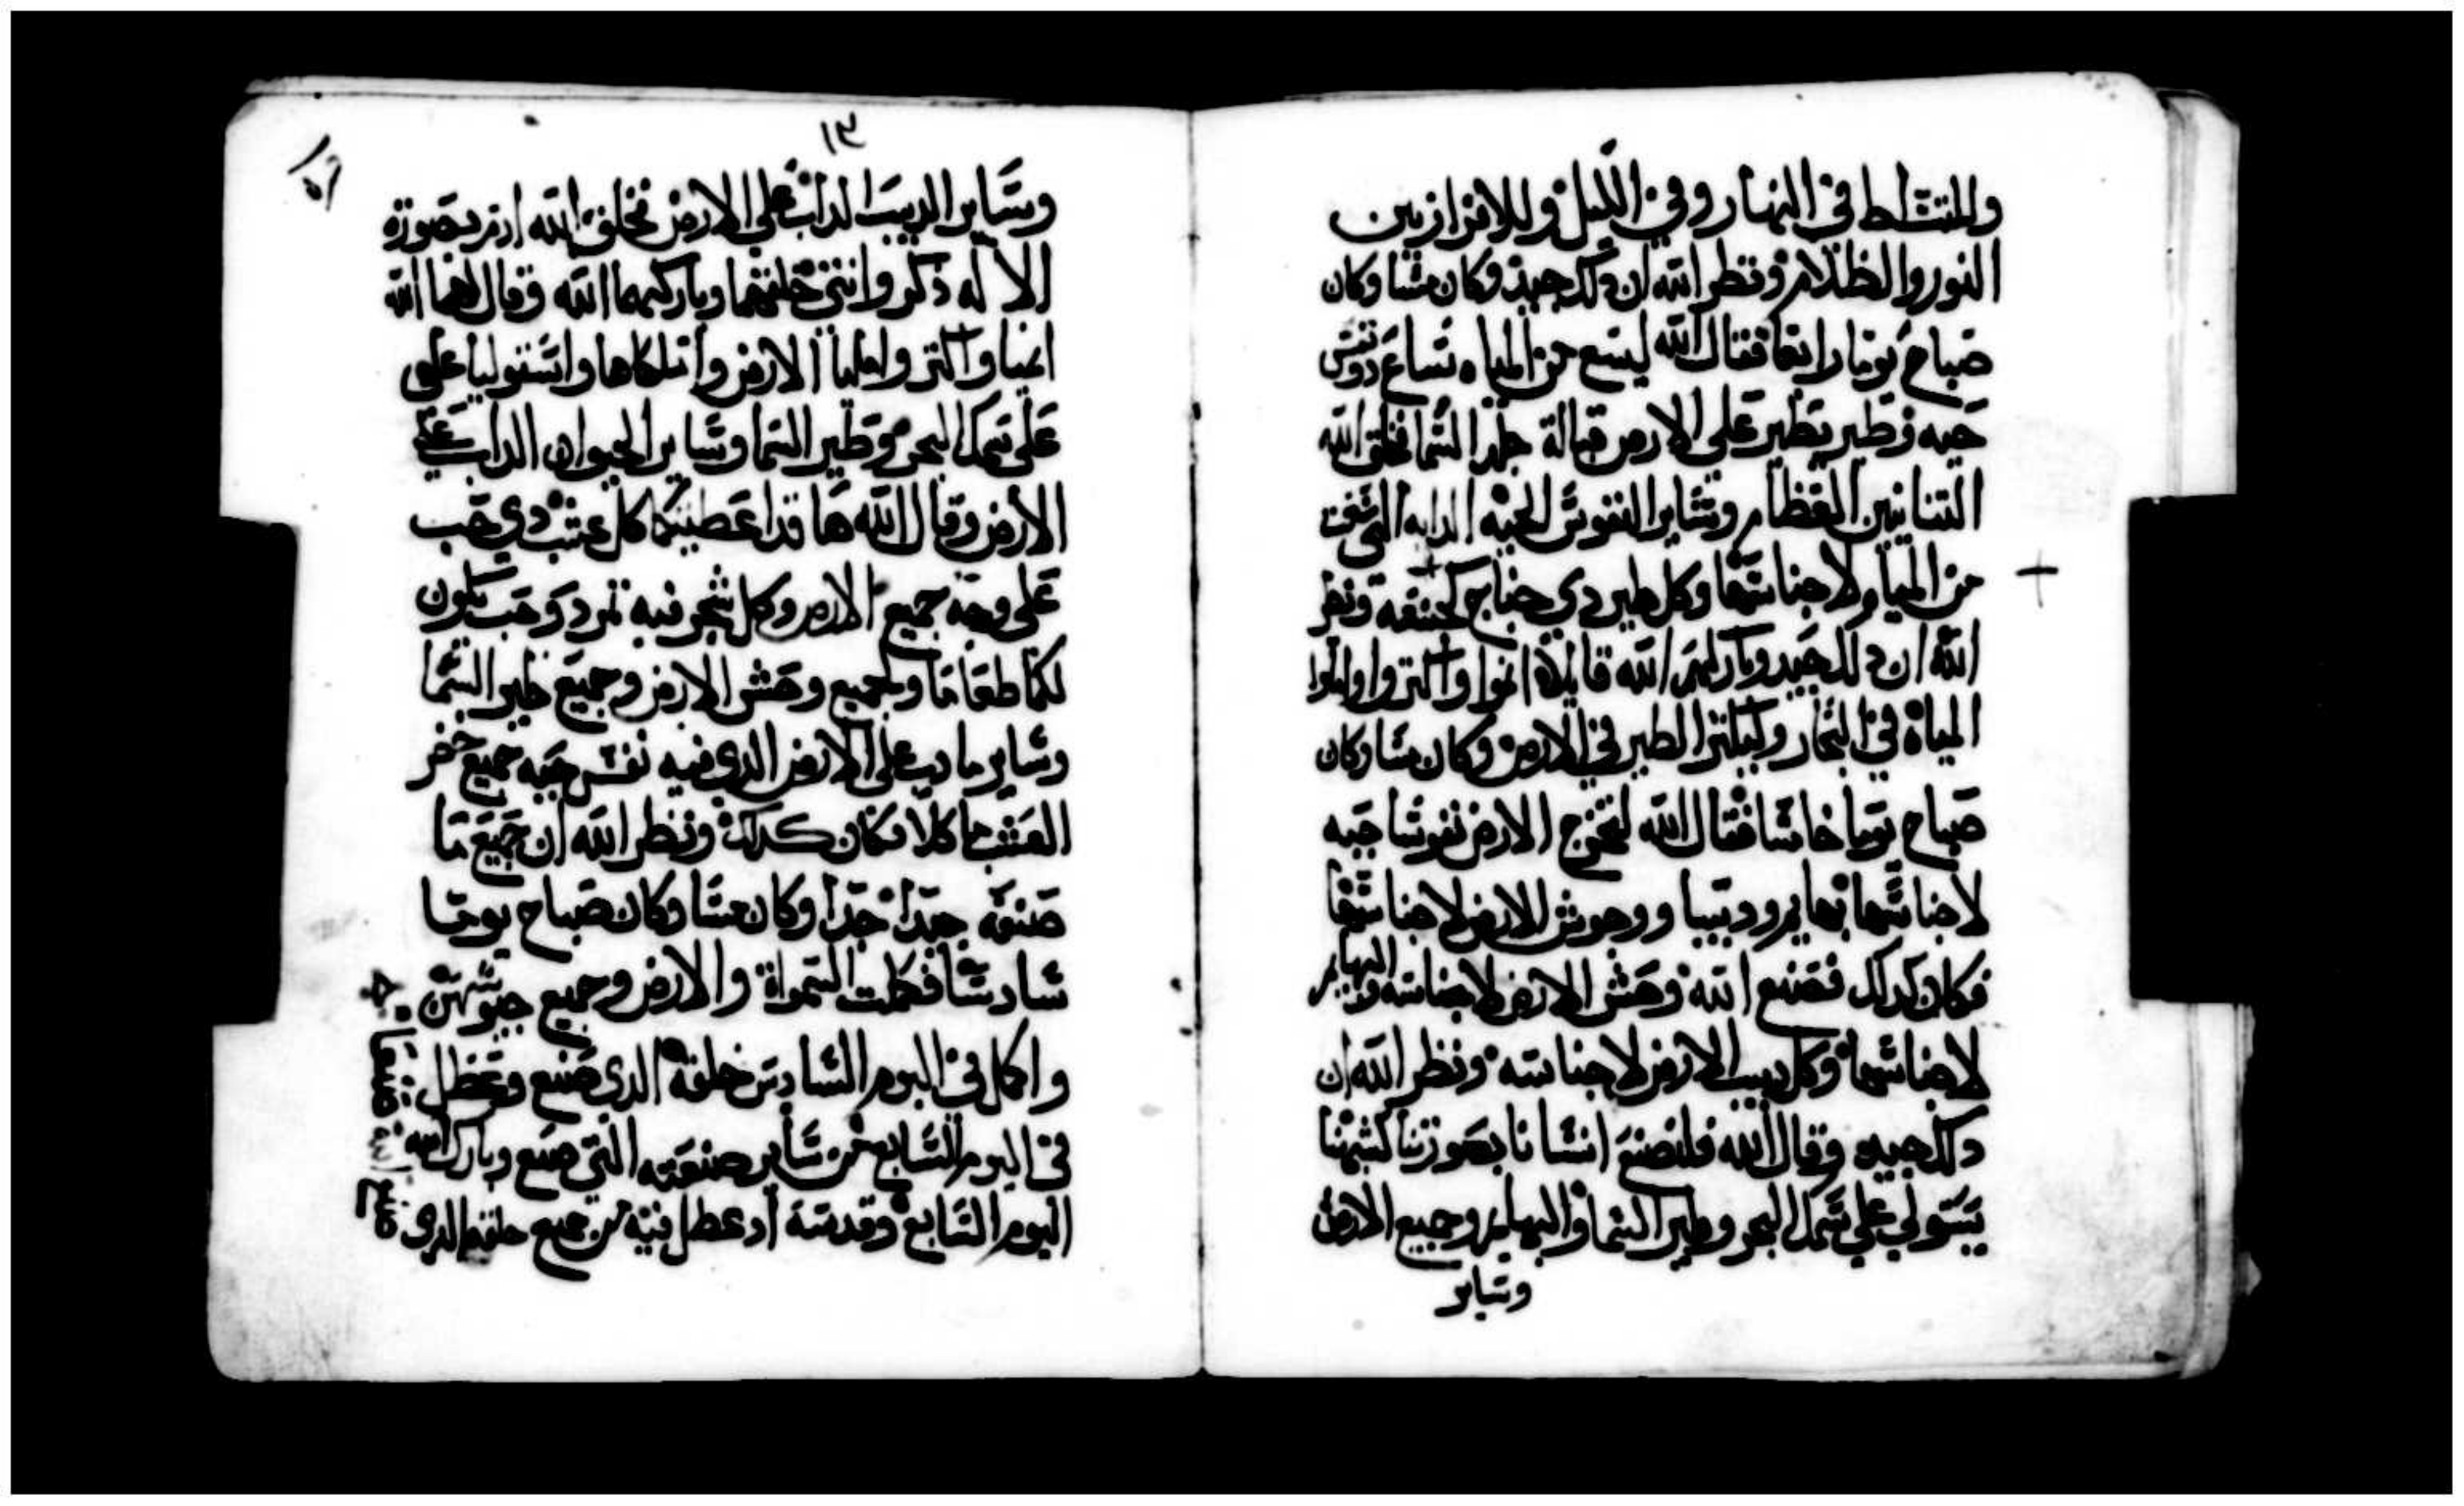 وللتسلط في النهار وفي الليل وللافراز بين
النور والظلام ونظر الله ان دلك جيد وكان مسا وكان
صباح يوما رابعا فقال الله ليسع من المياه ساع دو نفس
حيه وطير يطير على الارض قبالة جلد السما فخلق الله
التنانين العظام وساير النفوس الحيه الدابه التي سعت
من المياه لاجناسها وكل طير دي جناح كجنسه ونظر
الله ان دلك جيد وباركهم الله قايلا انموا واكثروا واملوا
المياه في البحار وليكثر الطير في الارض وكان مسا وكان
صباح يوما خامسا فقال الله لتخرج الارض نفوسا حيه
لاجناسها بهايم ودبيبا ووحوش الارض لاجناسها
فكان كدلك فصنع الله وحش الارض لاجناسه والبهايم
لاجناسها وكل دبيب الارض لاجناسه ونظر الله ان
دلك جيد وقال الله فلنصنع انسانا بصورتنا كشبهنا
يستولي على سمك البحر وطير السما والبهايم وجميع الارض
وساير
١٣
وساير الدبيب الداب على الارض فخلق الله ادم بصورة
الا له دكر وانثى خلقهما وباركهما الله وقال لهما الله
انميا واكثر واملیا الارض واملكاها واستوليا على
على سمك البحر وطير السما وساير الحيوان الداب على
الارض وقال الله ها قد اعطيتكما كل عشب دي حب
على وجه جميع الارض وكل شجر فيه تمر دو حب يكون
لكما طعاما ولجميع وحش الارض وجميع طير السما
وساير ما دب على الارض الدي فيه نفس حيه جميع خضر
العشب ماكلا فكان كدلك ونظر الله ان جميع ما
صنعه جيدا جدا وكان مسا وكان صباح يوما
سادسا فكملت السمواة والارض وجميع جيوشهن
واكمل في اليوم السادس خلقه الدي صنع وعطل
في اليوم السابع من ساير صنعته التي صنع وبارك الله
اليوم السابع وقدسه اد عطل فيه من جميع خلقه الدي